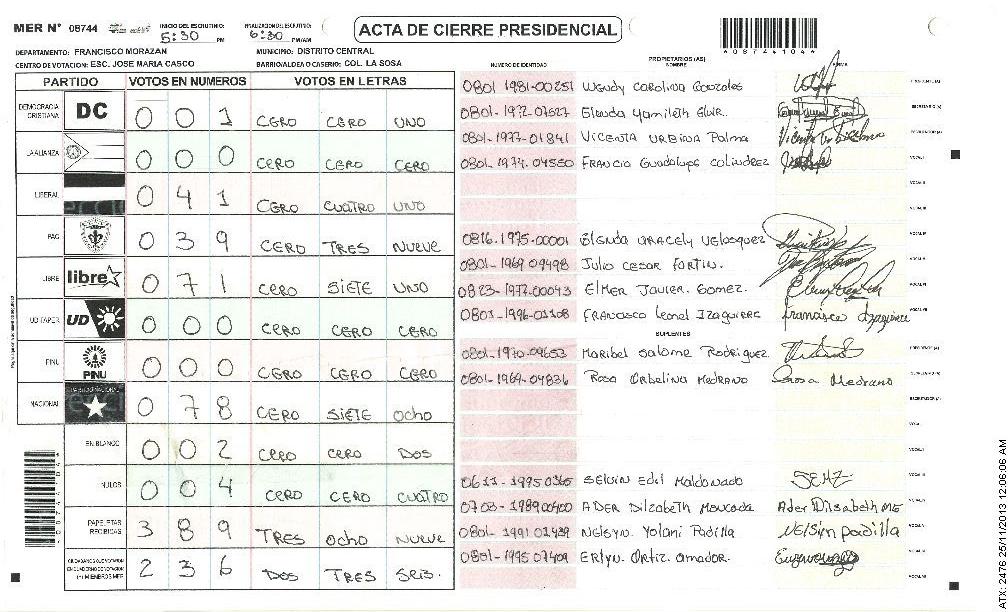 MER N° 08744 INICIO DEL ESCRUTINIO: 5:30 PM FINALIZACION DEL ESCRUTINIO: 6:30 PM/AM
ACTA DE CIERRE PRESIDENCIAL
DEPARTAMENTO: FRANCISCO MORAZAN MUNICIPIO: DISTRITO CENTRAL
CENTRO DE VOTACION: ESC. JOSE MARIA CASCO BARRIO/ALDEA O CASERIO: COL. LA SOSA
PARTIDO VOTOS EN NUMEROS VOTOS EN LETRAS
DEMOCRACIA CRISTIANA DC 0 0 1 CERO CERO UNO
LA ALIANZA 0 0 0 CERO CERO CERO
LIBERAL 0 4 1 CERO CUATRO UNO
PAC 0 3 9 CERO TRES NUEVE
LIBRE libre 0 7 1 CERO SIETE UNO
UD FAPER UD 0 0 0 CERO CERO CERO
PINU PINU 0 0 0 CERO CERO CERO
NACIONAL 0 7 8 CERO SIETE OCHO
EN BLANCO 0 0 2 CERO CERO DOS
NULOS 0 0 4 CERO CERO CUATRO
PAPELETAS RECIBIDAS 3 8 9 TRES OCHO NUEVE
2 3 6 DOS TRES SEIS.
PROPIETARIOS (AS)
NUMERO DE IDENTIDAD NOMBRE FIRMA
0801-1981-00251 Wendy Carolina Gonzales
0801-1972-07627 Glenda Yamileth
0801-1977-01841 VICENTA URBINA Palma
0801-1974-04550 FRANCIS Guadalupe Colindrez
0816-1975-00001 Glenda ARACELY VELASQUEZ
0801-1969 09498 Julio CESAR FORTIN.
0823-1972-00043 ElMER JAVIER. GOMEZ.
0801-1996-01108 FRANCISCO Leonel IZAGUIRRE Francisco Izaguirre
SUPLENTES
0801-1970-09653 Maribel Salome Rodriguez
0801-1969-04836 ROSA ORBELINA MEDRANO Rosa Medrano
0611-1995 0365 SELVIN Edil Maldonado SEMZ
0703-1989 00400 ADER Dilzabeth Moncada Ader Dilsabeth ME
0801-1991 07439 Nelsyn. Yolani Padilla Nelsin padilla
0801-1995 07409 Erlyn. Ortiz. amador.
ATX: 2476 25/11/2013 12:06:06 AM